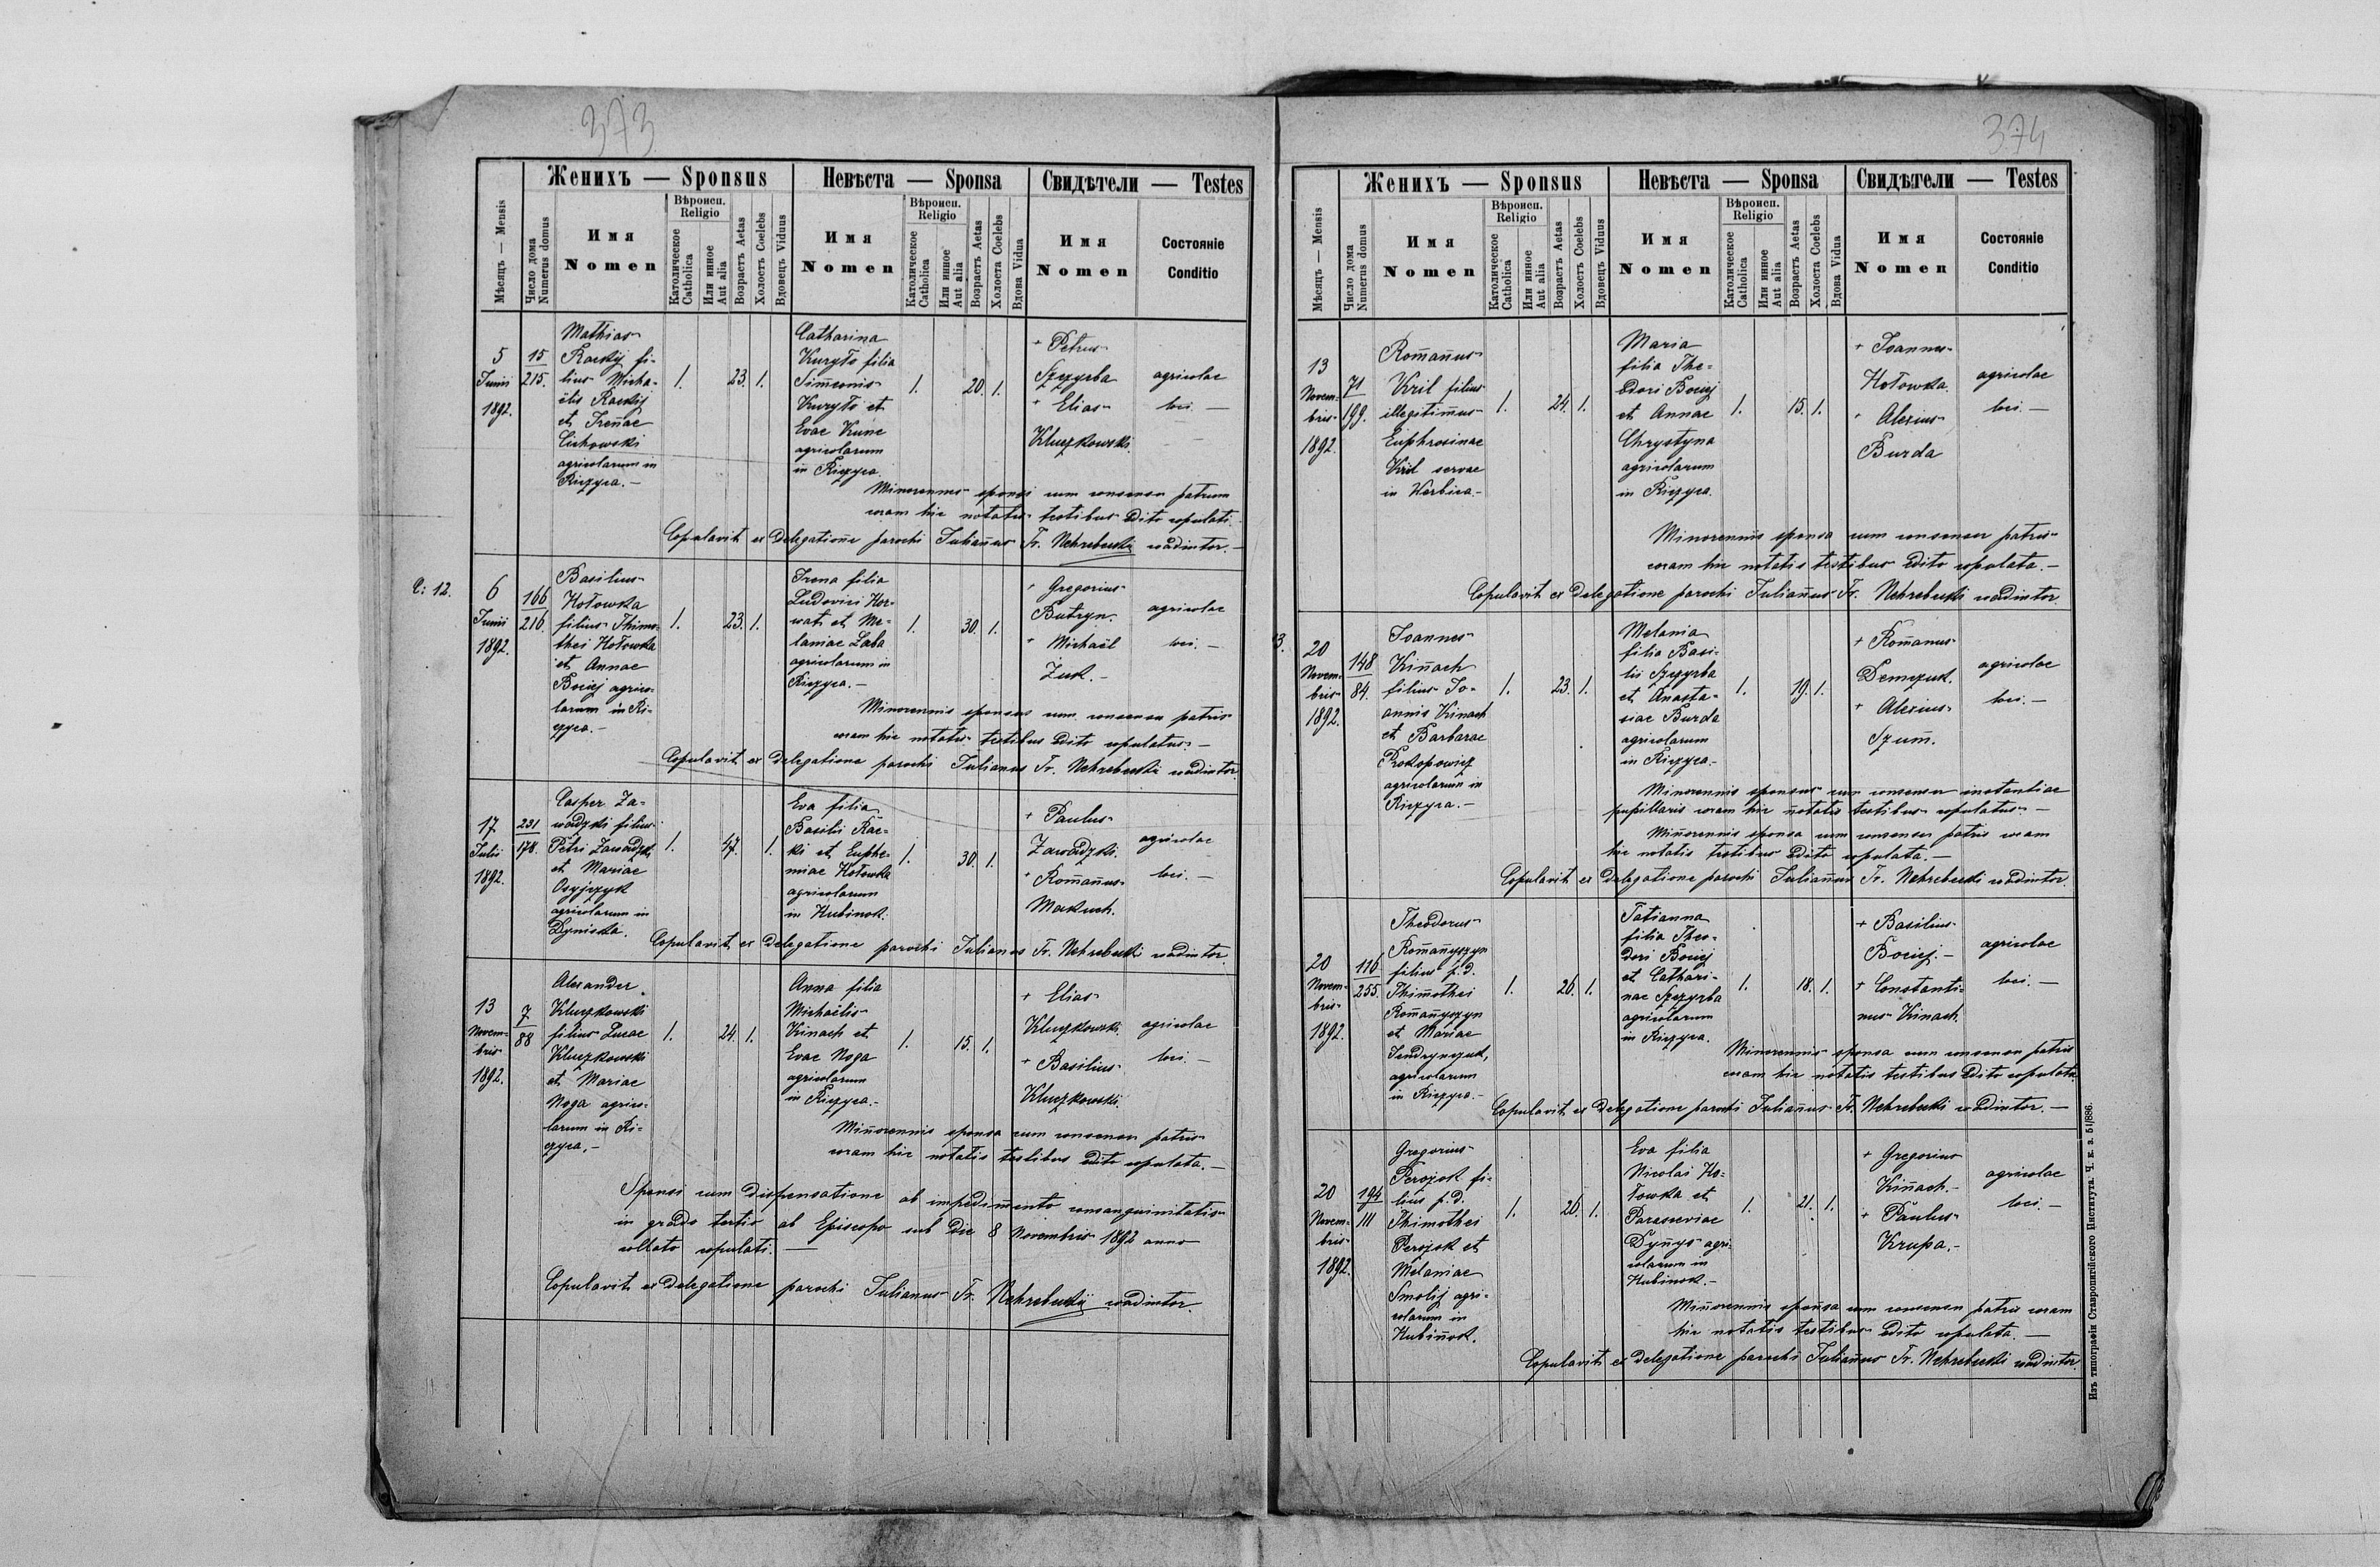 373
Женихъ — Sponsus
Невѣста — Sponsa
Свидѣтели — Testes
Мѣсяцъ — Mensis
Число дома
Numerus domus
Имя
Nomen
Вѣроисп.
Religio
Католическое
Catholica
Или инное
Aut alia
Возрастъ Aetas
Холостъ Coelebs
Вдовецъ Viduus
Имя
Nomen
Вѣроисп.
Religio
Католическое
Catholica
Или инное
Aut alia
Возрастъ Aetas
Холоста Coelebs
Вдова Vidua
Имя
Nomen
Состояніе
Conditio
5
Junii
1892.
15
215.
Mathias
Rackij fi-
lius Micha-
ëlis Rackij
et Irenae
Cichowski
agricolarum in
Riczyca.—
1. 23. 1.
Catharina
Kuryło filia
Simeonis
Kuryło et
Evae Kunc
agricolarum
in Riczyca
1. 20. 1.
+ Petrus
Szczyrba
+ Elias
Kluczkowski.
agricolae
loci. —
Minorennes sponsi cum consensu patrum
coram hic notatis testibus edito copulati.
Copulavit ex delegatione parochi Julianus Fr. Nehrebecki coadiutor.—
L: 12.
6
Junii
1892.
166
216.
Basilius
Hołowka
filius Thimo-
thei Hołowka
et Annae
Bociej agrico-
larum in Ri-
czyca.—
1. 23. 1.
Irena filia
Ludovici Hor-
wat et Me-
laniae Łaba
agricolarum in
Riczyca.—
1. 30. 1.
+ Gregorius
Butryn.
+ Michaël
Żuk.—
agricolae
loci. —
Minorennis sponsus cum consensu patris
coram hic notatis testibus edito copulatus.—
Copulavit ex delegatione parochi Julianus Fr. Nehrebecki coadiutor.
17
Julii
1892.
231
178.
Casper Za-
wadzki filius
Petri Zawadzki
et Mariae
agricolarum in
Dyniska.
1. 47. 1.
Eva filia
Basilii Rac-
ki et Euphe-
miae Hołowka
agricolarum
in Hubinok.
1. 30. 1.
+ Paulus
Zawadzki.
+ Romanus
Makuch.
agricolae
loci. —
Copulavit ex delegatione parochi Julianus Fr. Nehrebecki coadiutor.
13
Novem-
bris
1892.
7
88
Alexander
Kluczkowski
filius Lucae
Kluczkowski
et Mariae
Noga agrico-
larum in Ri-
czyca.—
1. 24. 1.
Anna filia
Michaëlis
Kinach et
Evae Noga
agricolarum
in Riczyca.—
1. 15. 1.
+ Elias
Kluczkowski.
+ Basilius
Kluczkowski.
agricolae
loci. —
Minorennis sponsa cum consensu patris
coram hic notatis testibus edito copulata.—
Sponsi cum dispensatione ab impedimento consanguinitatis
in grado tertio ab Episcopo sub die 8 Novembris 1892 anno
collato copulati.—
Copulavit ex delegatione parochi Julianus Fr. Nehrebeckij coadiutor.
374
Женихъ — Sponsus
Невѣста — Sponsa
Свидѣтели — Testes
Мѣсяцъ — Mensis
Число дома
Numerus domus
Имя
Nomen
Вѣроисп.
Religio
Католическое
Catholica
Или инное
Aut alia
Возрастъ Aetas
Холостъ Coelebs
Вдовецъ Viduus
Имя
Nomen
Вѣроисп.
Religio
Католическое
Catholica
Или инное
Aut alia
Возрастъ Aetas
Холоста Coelebs
Вдова Vidua
Имя
Nomen
Состояніе
Conditio
13
Novem-
bris
1892.
71
199.
Romanus
Kril filius
illegitimus
Euphrosinae
Kril servae
in Korbica.—
1. 24. 1.
Maria
filia The-
dori Bociej
et Annae
Chrystyna
agricolarum
in Riczyca.
1. 15. 1.
+ Joannes
Hołowka.
+ Alexius
Burda
agricolae
loci. —
Minorennis sponsa cum consensu patris
coram hic notatis testibus edito copulata.—
Copulavit ex delegatione parochi Julianus Fr. Nehrebecki coadiutor.
13.
20
Novem-
bris
1892.
148
84.
Joannes
Kinach
filius Jo-
annis Kinach
et Barbarae
Prokopowicz
agricolarum in
Riczyca.—
1. 23. 1.
Melania
filia Basi-
lii Szczyrba
et Anasta-
siae Burda
agricolarum
in Riczyca.—
1. 19. 1.
+ Romanus
Demczuk.
+ Alexius
Szum.
agricolae
loci. —
Minorennis sponsus cum consensu instantiae
pupillaris coram hic notatis testibus copulatus.—
Minorennis sponsa cum consensu patris coram
hic notatis testibus edito copulata.—
Copulavit ex delegatione parochi Julianus Fr. Nehrebecki coadiutor.
20
Novem-
bris
1892.
116
255.
Theodorus
Romanyszyn
filius p.d.
Thimothei
Romanyszyn
et Mariae
Jendrynczuk,
agricolarum
in Riczyca.—
1. 26. 1.
Tatianna
filia Theo-
dori Bociej
et Cathari-
nae Szczyrba
agricolarum
in Riczyca.
1. 18. 1.
+ Basilius
Bociej.—
+ Constanti-
nus Kinach.
agricolae
loci. —
Minorennis sponsa cum consensu patris
coram hic notatis testibus edito copulata.
Copulavit ex delegatione parochi Julianus Fr. Nehrebecki coadiutor.—
20
Novem-
bris
1892.
194
111
Gregorius
Perozok fi-
lius p.d.
Thimothei
Perozok et
Melaniae
Smolij agri-
colarum in
Hubinok.
1. 26. 1.
Eva filia
Nicolai Ho-
łowka et
Parasceviae
Dynys agri-
colarum in
Hubinok.—
1. 21. 1.
+ Gregorius
Kinach.—
+ Paulus
Krupa.—
agricolae
loci. —
Minorennis sponsa cum consensu patris coram
hic notatis testibus edito copulata.—
Copulavit ex delegatione parochi Julianus Fr. Nehrebecki coadiutor.
Изъ типографіи Ставропигійского Института. Ч. к. з. 51/886.